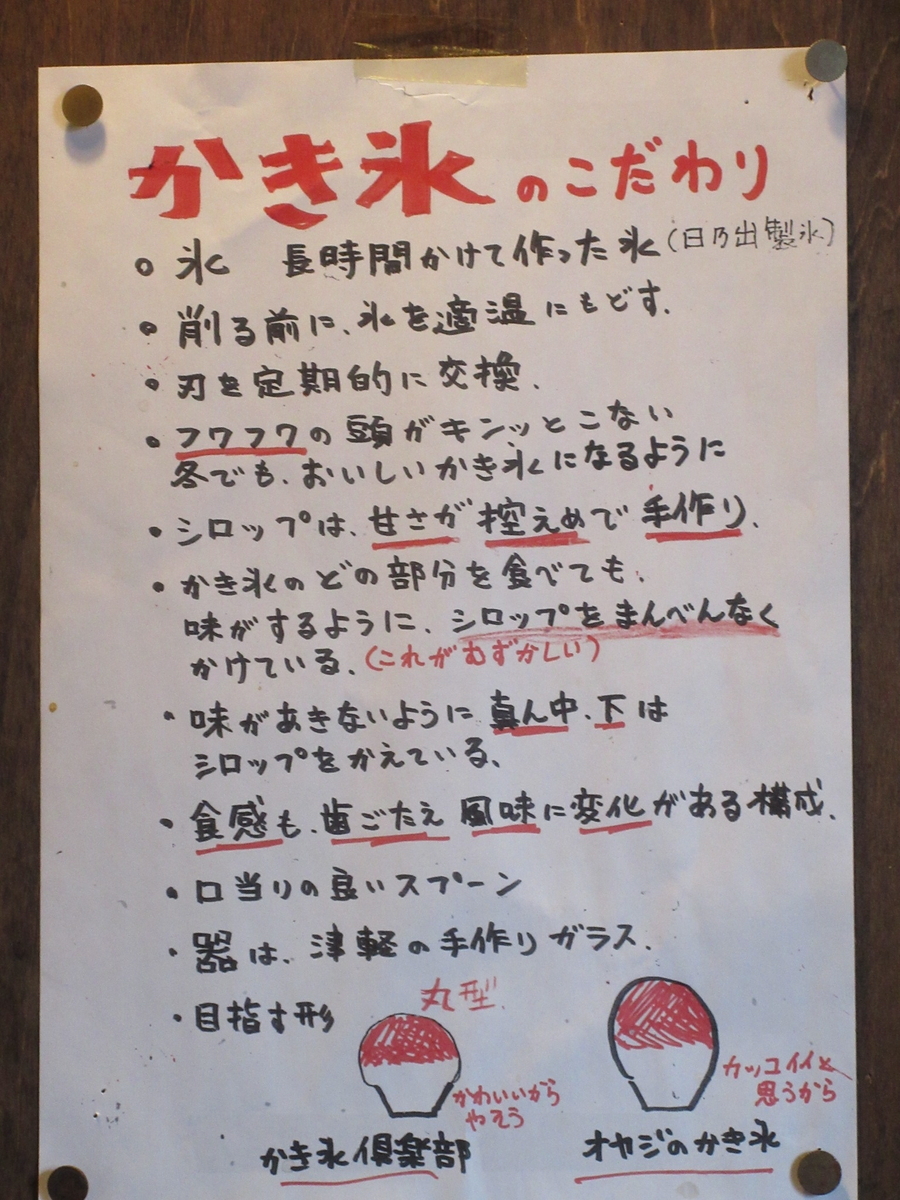 かき氷のこだわり
・氷 長時間かけて作った氷(日乃出製氷)
・削る前に、氷を適温にもどす.
・刃を定期的に交換.
・フワフワの頭がキンッとこない
冬でも、おいしいかき氷になるように
・シロップは、甘さが控えめで手作り.
・かき氷のどの部分を食べても、
味がするように、シロップをまんべんなく
かけている。(これがむずかしい)
・味があきないように真ん中、下は
シロップをかえている。
・食感も、歯ごたえ 風味に変化がある構成.
・口当りの良いスプーン
・器は、津軽の手作りガラス.
・目指す形
丸型
かわいいから
カッコイイと
思うから
かき氷倶楽部
オヤジのかき氷